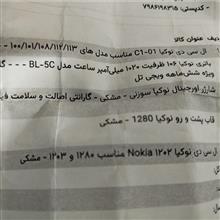 - کدپستی: ۷۹۸۶۱۹۸۳۱۵
عنوان کالا
۱ ال سی دی نوکیا C1-01 مناسب مدل های ۱۰۰/۱۰۱/۱۰۸/۱۱۲/۱۱۳ -
باتری نوکیا ۱۰۶ ظرفیت ۱۰۲۰ میلی‌آمپر ساعت مدل BL-5C - - -
ویژه شش‌ماهه ویجی تل
شارژر اورجینال نوکیا سوزنی - مشکی - گارانتی اصالت و سلامت
قاب پشت و رو نوکیا 1280 - مشکی
ال سی دی نوکیا Nokia ۱۲۰۲ مناسب ۱۲۸۰ و ۱۲۰۳ - مشکی